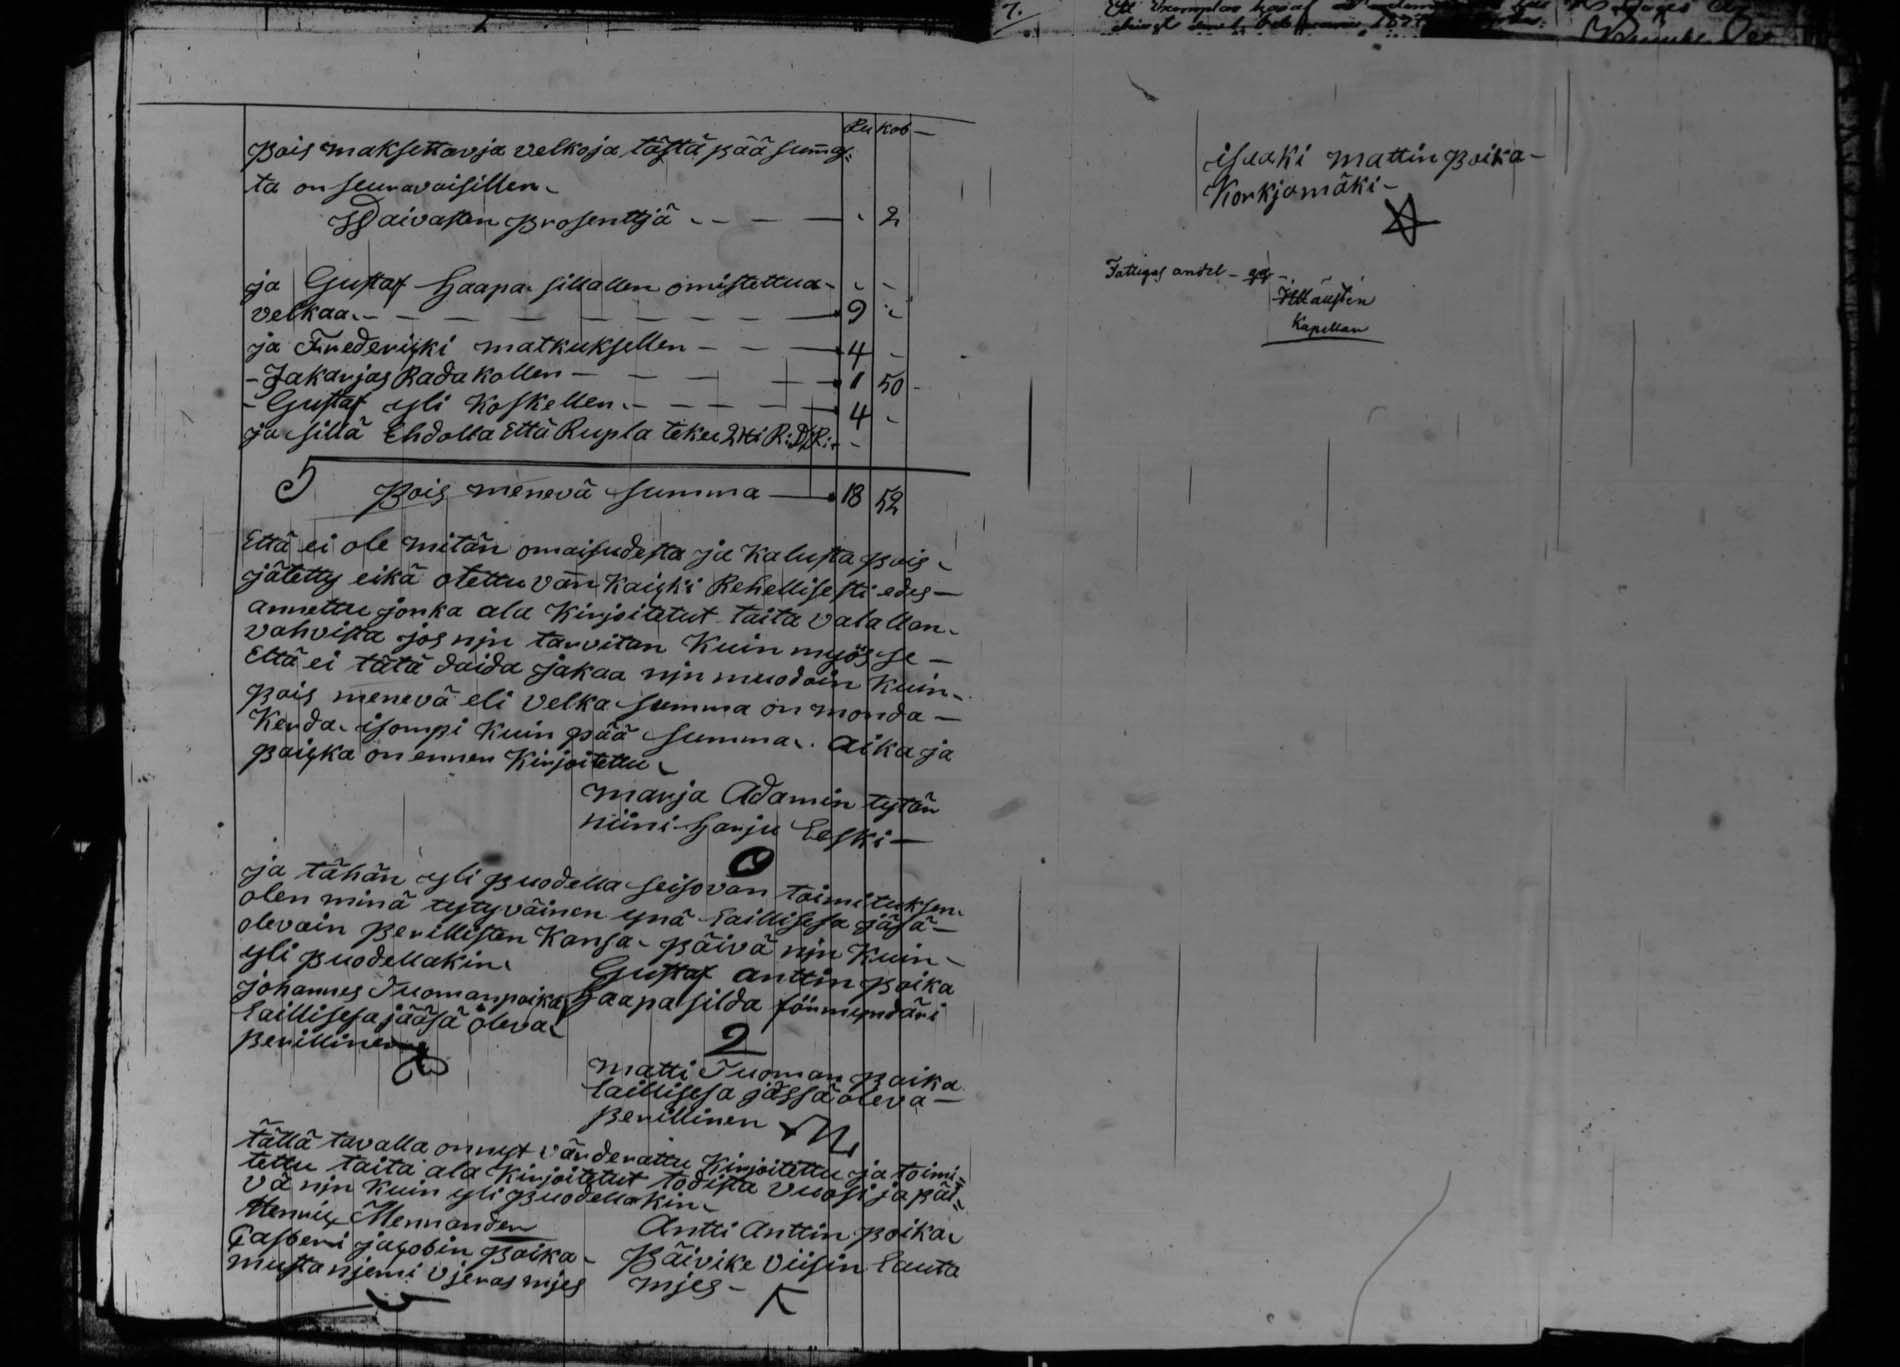 7.
Ru kob
pois maksettavja velkoja tästä pää sum̄as:
ta on seuravaisillen
Waivasten prosenttjä 2
ja Gustaf Haapa sillallen omistettua
velkaa 9
ja Frederikki matkuksellen 4
Zakarjas Radakollen 1 50
Gustaf yli Koskellen 4
ja sillä Ehdolla Että Rupla tekee
Pois menevä summa 18 52
Että ei ole mitän omaisudesta ja Kalusta pois
jätetty eikä otettu van̄ Kaikki Rehellisesti edes
annettu jonka ala Kirjoitetut taita valallan
vahvista jos njn tarvitan Kuin myös se
Että ei tätä daida jakaa njn muodoin Kuin
pois menevä eli velka summa on monda
Kerda isompi Kuin pää summa. aika ja
paikka on ennen Kirjoitettu
marja Adamin tytär
niini harju Leski
ja tähän yli puodella seisovan toimituksen
olen minä tytyväinen ynä laillisesa jäsä
olevain perillisten Kansa päivä njn Kuin
yli puodellakin
Gustaf anttin poika
Haapasilda förmyndäri
johannes Tuomanpoika
laillisesa jääsä oleva
perillinen
2
matti Tuoman poika
laillisesa jässä oleva
perillinen
tällä tavalla on nyt värderattu Kirjoitettu ja toimi=
tettu taita ala Kirjoitetut todista vuosi ja päi=
vä njn Kuin yli puodellakin
Henrik Mennander
Casperi jacobin poika
musta njemi vjeras mjes
Antti Anttin poika
Päivike viisin lauta
mjes
isaaki mattin poika
Korkjamäki
Fattigas andel
Kapellan